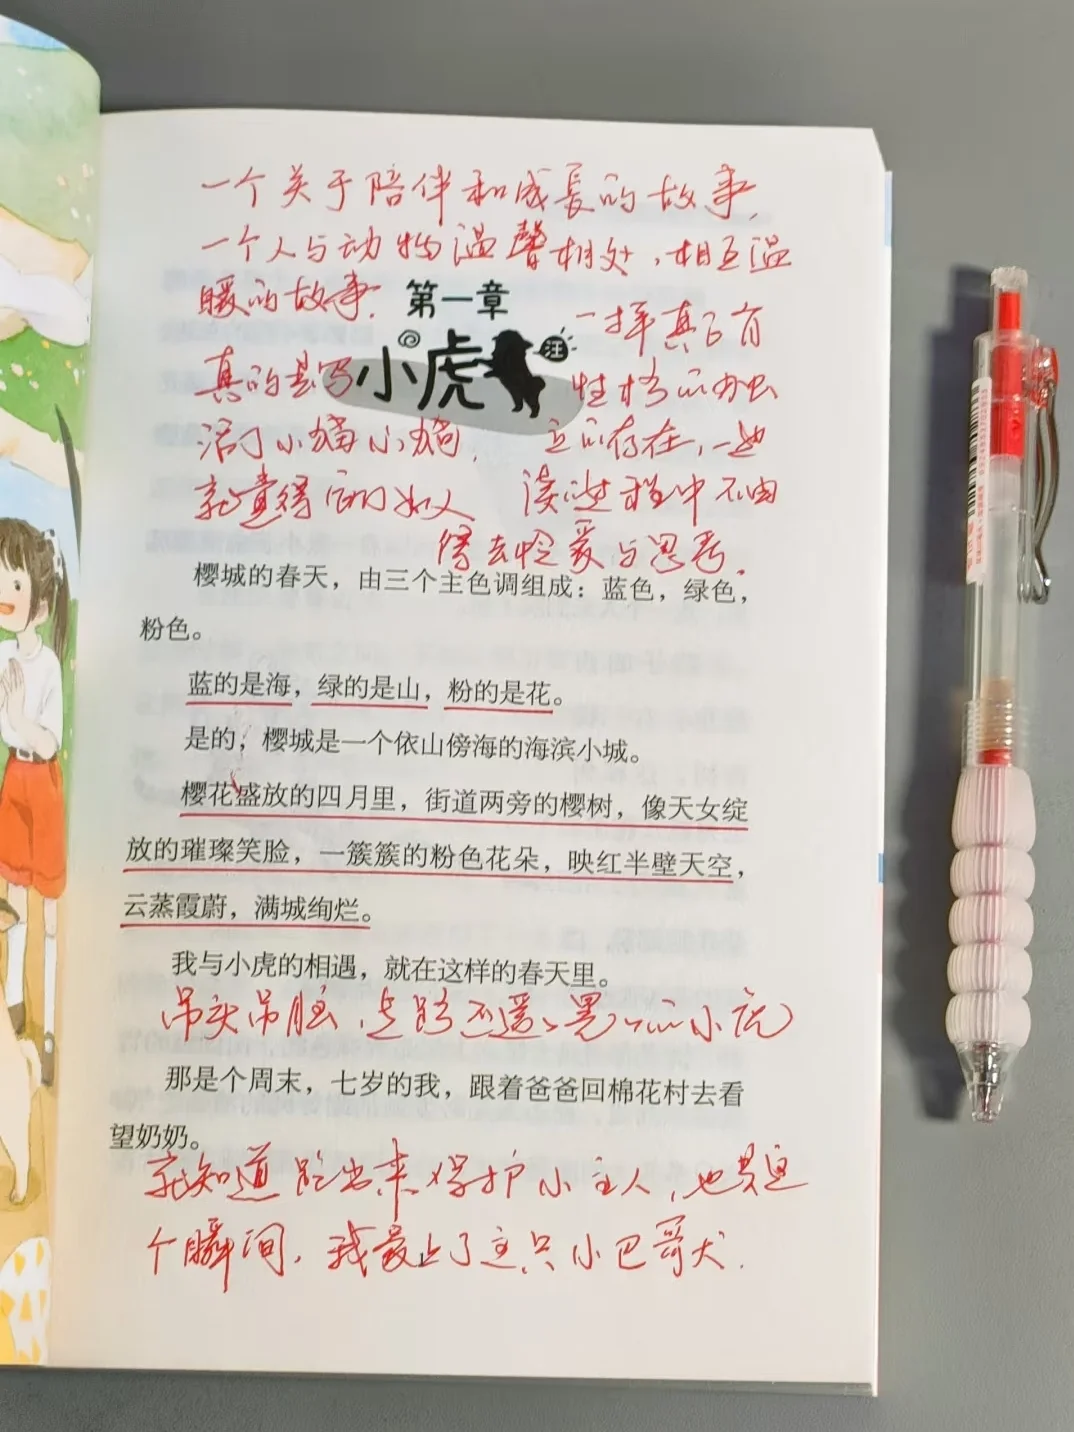 一个关于陪伴和成长的故事，
一个人与动物温馨相处，相互温
暖的故事.
第一章
小虎
汪
真的是写
活了小猫小狗，
就觉得它们如人
一样真正有
性格的
的存在，
读的过程中不由
得去怜爱与思考.
樱城的春天，由三个主色调组成：蓝色，绿色，
粉色。
蓝的是海，绿的是山，粉的是花。
是的，樱城是一个依山傍海的海滨小城。
樱花盛放的四月里，街道两旁的樱树，像天女绽
放的璀璨笑脸，一簇簇的粉色花朵，映红半壁天空，
云蒸霞蔚，满城绚烂。
我与小虎的相遇，就在这样的春天里。
呆头呆脑，走路还
小虎
那是个周末，七岁的我，跟着爸爸回棉花村去看
望奶奶。
就知道跑出来保护小主人，也是这
个瞬间，我爱上了这只小巴哥犬.